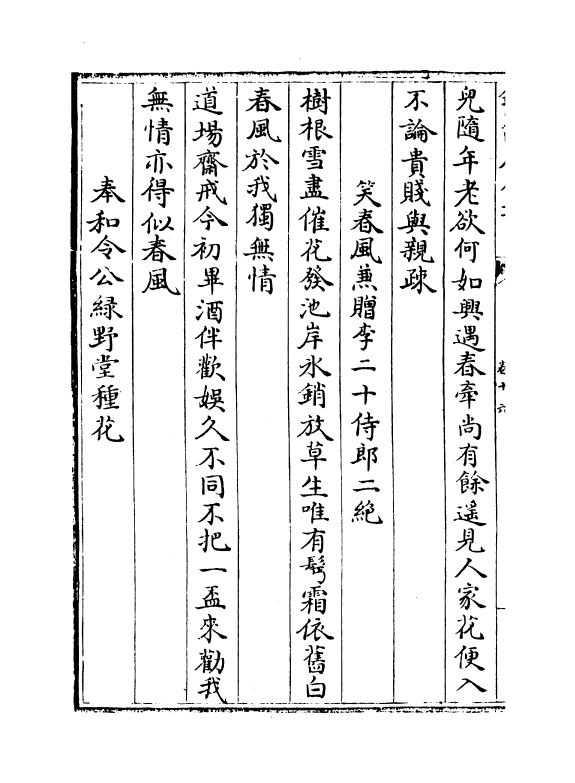 卷十六
皃隨年老欲何如興遇春牽尚有餘遥見人家花便入
不論貴賤與親疎
笑春風兼贈李二十侍郎二絶
樹根雪盡催花發池岸氷銷放草生唯有鬢霜依舊白
春風於我獨無情
道場齋戒今初畢酒伴歡娛久不同不把一盃來勸我
無情亦得似春風
奉和令公緑野堂種花